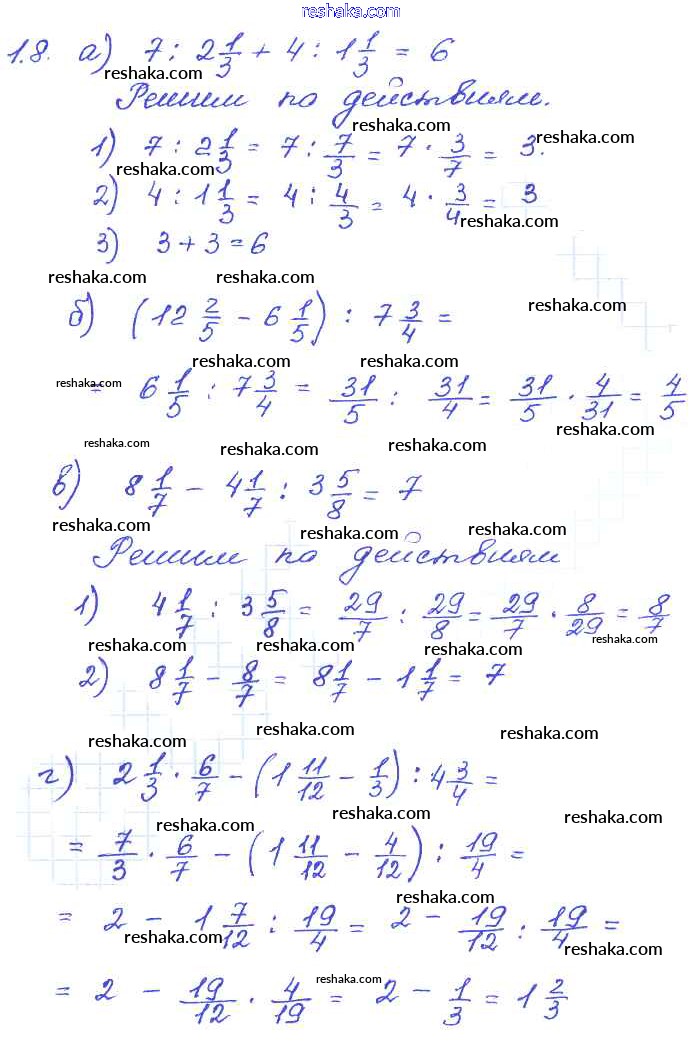 www.reshaka.com
1.8. а) 7 : 2 1/3 + 4 : 1 1/3 = 6
reshaka.com reshaka.com
Решим по действиям.
reshaka.com reshaka.com
1) 7 : 2 1/3 = 7 : 7/3 = 7 · 3/7 = 3.
reshaka.com
2) 4 : 1 1/3 = 4 : 4/3 = 4 · 3/4 = 3
reshaka.com
3) 3 + 3 = 6
reshaka.com reshaka.com reshaka.com
б) (12 2/5 - 6 1/5) : 7 3/4 =
reshaka.com reshaka.com reshaka.com
= 6 1/5 : 7 3/4 = 31/5 : 31/4 = 31/5 · 4/31 = 4/5
reshaka.com reshaka.com reshaka.com reshaka.com
в) 8 1/7 - 4 1/7 : 3 5/8 = 7
reshaka.com reshaka.com reshaka.com
Решим по действиям
1) 4 1/7 : 3 5/8 = 29/7 : 29/8 = 29/7 · 8/29 = 8/7
reshaka.com reshaka.com reshaka.com
2) 8 1/7 - 8/7 = 8 1/7 - 1 1/7 = 7
reshaka.com reshaka.com reshaka.com
г) 2 1/3 · 6/7 - (1 11/12 - 1/3) : 4 3/4 =
reshaka.com reshaka.com
= 7/3 · 6/7 - (1 11/12 - 4/12) : 19/4 =
reshaka.com
= 2 - 1 7/12 : 19/4 = 2 - 19/12 : 19/4 =
reshaka.com reshaka.com
reshaka.com
= 2 - 19/12 · 4/19 = 2 - 1/3 = 1 2/3
reshaka.com